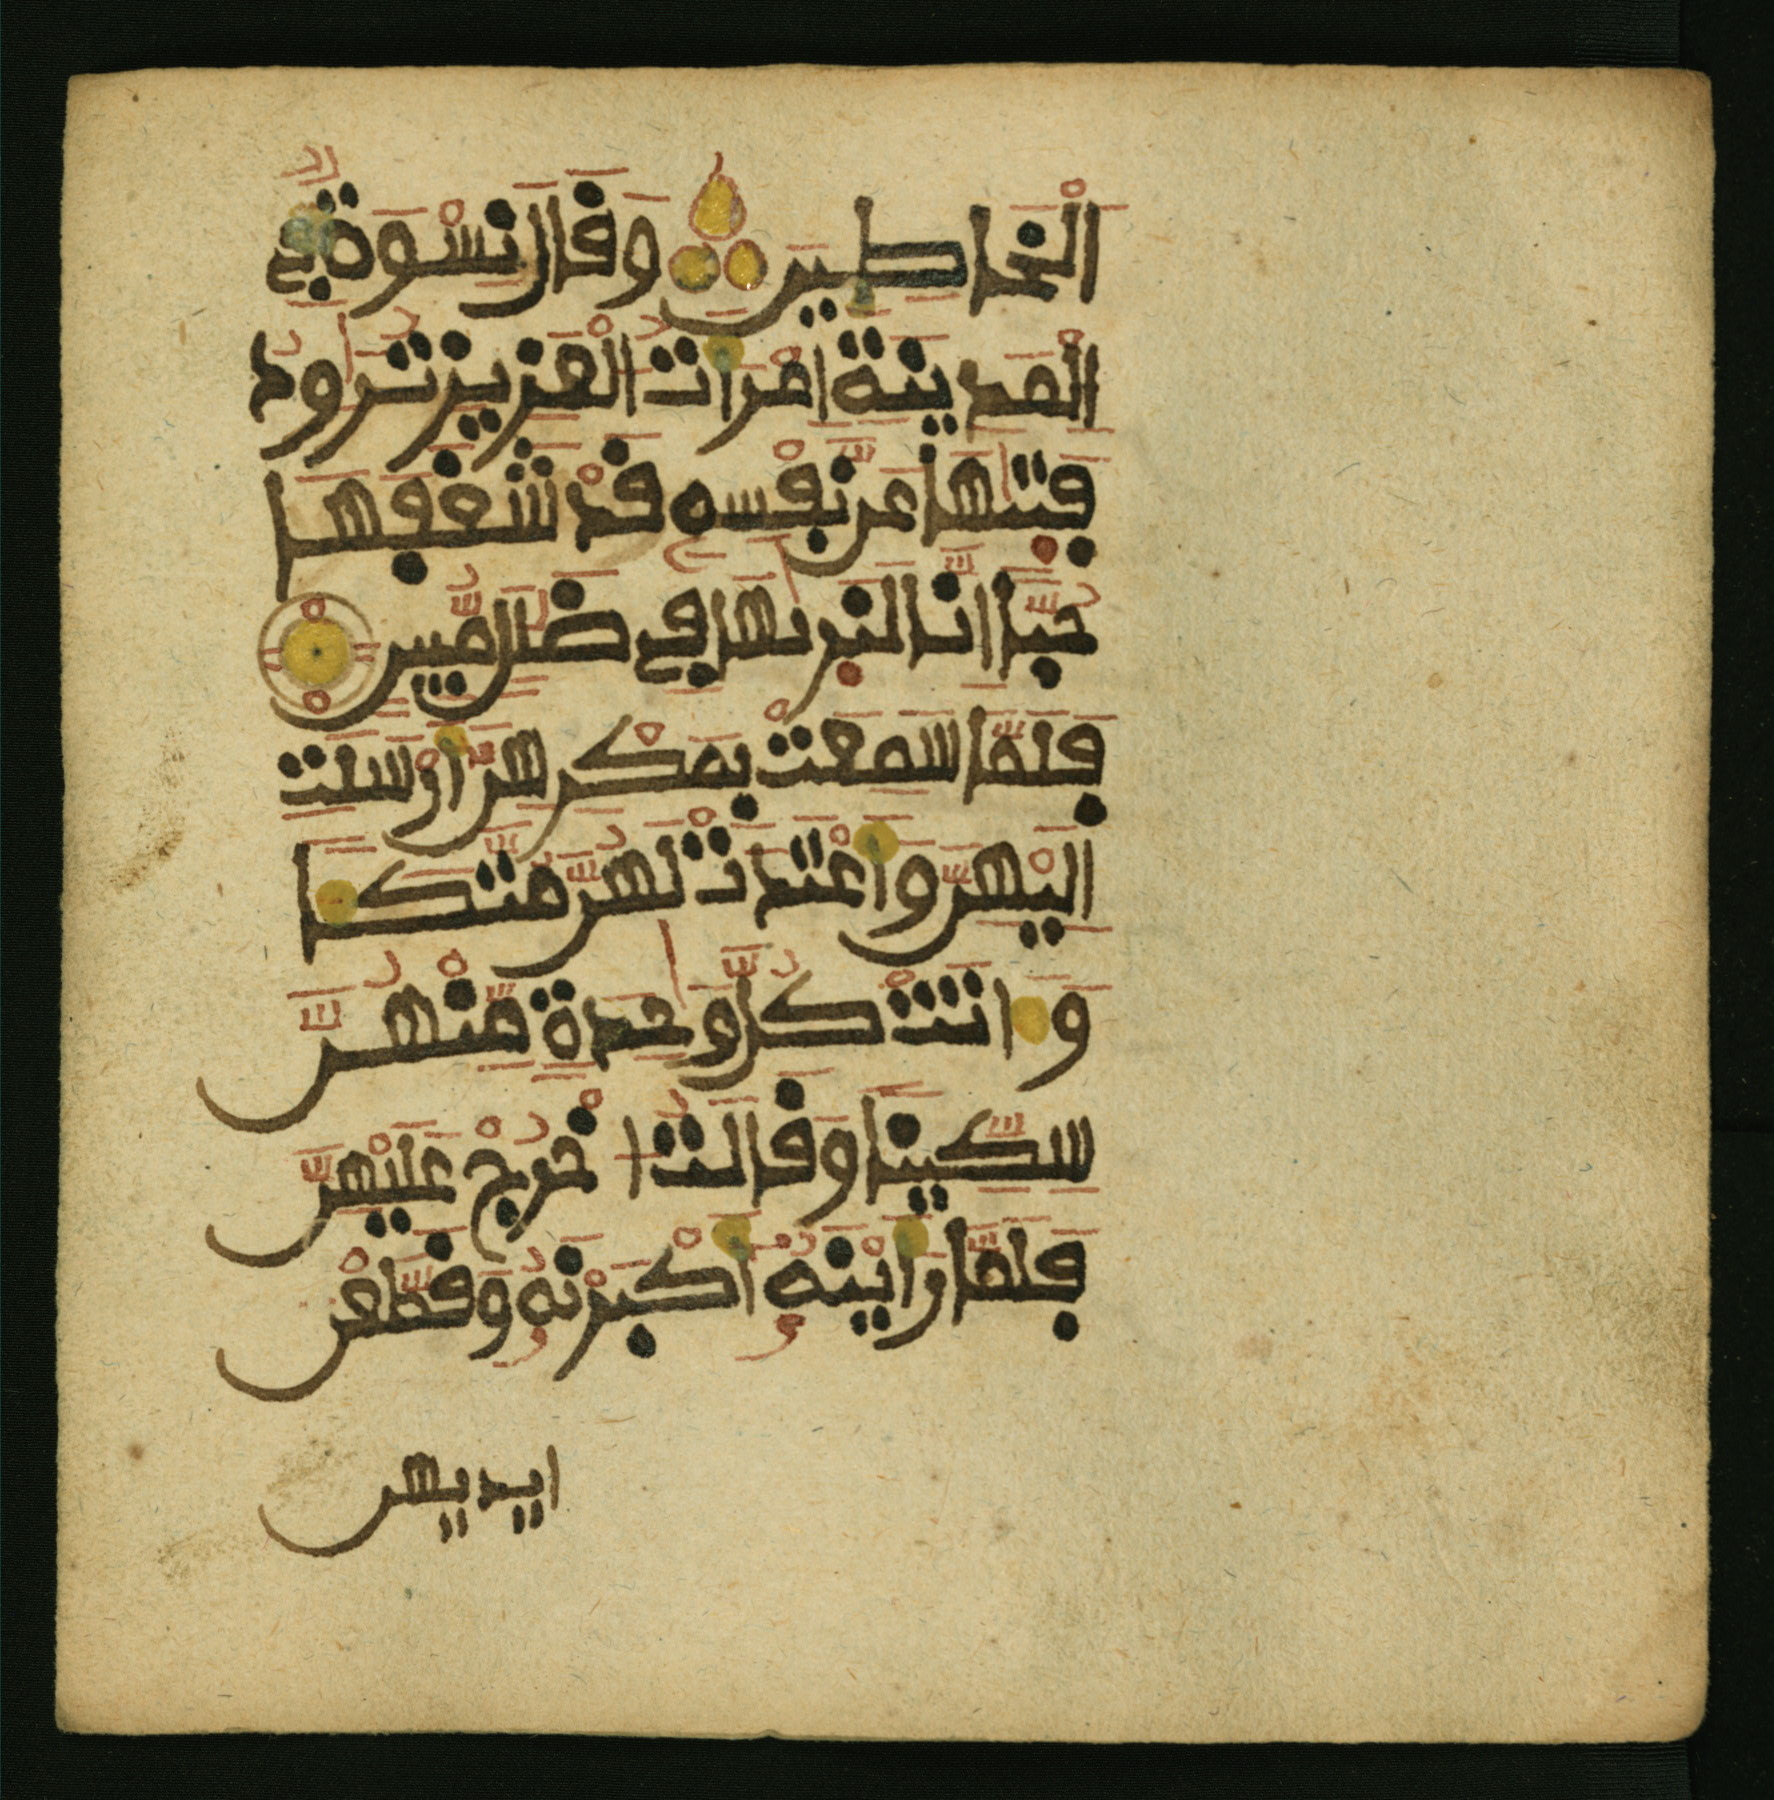 اَ۬لْخَاطِـِٕينَ وَقَالَ نِسْوَةٞ فِے
اِ۬لْمَدِينَةِ اِ۪مْرَأَتُ اُ۬لْعَزِيزِ تُرَٰوِدُ
فَتَيٰهَا عَن نَّفْسِهِۦ قَدْ شَغَفَهَا
حُبّاً اِنَّا لَنَر۪يٰهَا فِے ضَلَٰلٖ مُّبِينٖ
فَلَمَّا سَمِعَتْ بِمَكْرِهِنَّ أَرْسَلَتِ
اِلَيْهِنَّ وَأَعْتَدَتْ لَهُنَّ مُتَّكَـٔاٗ
وَءَاتَتْ كُلَّ وَٰحِدَةٖ مِّنْهُنَّ
سِكِّيناٗ وَقَالَتُ اُ۟خْرُجْ عَلَيْهِنَّ
فَلَمَّا رَأَيْنَهُۥٓ أَكْبَرْنَهُۥ وَقَطَّعْنَ
ايديهن